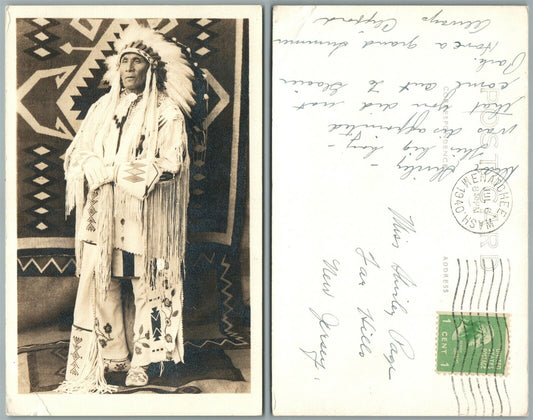 Dear
Shirley -
This big boy -
was disappointed
that you did not
come out to Glacier
Park.
Have a grand summer
Always
POSTCARD
CORRESPONDENCE
ADDRESS
WENATCHEE, WASH.
JUL 6
1940
Miss Shirley Page
Far Hills
New Jersey.
1 CENT 1